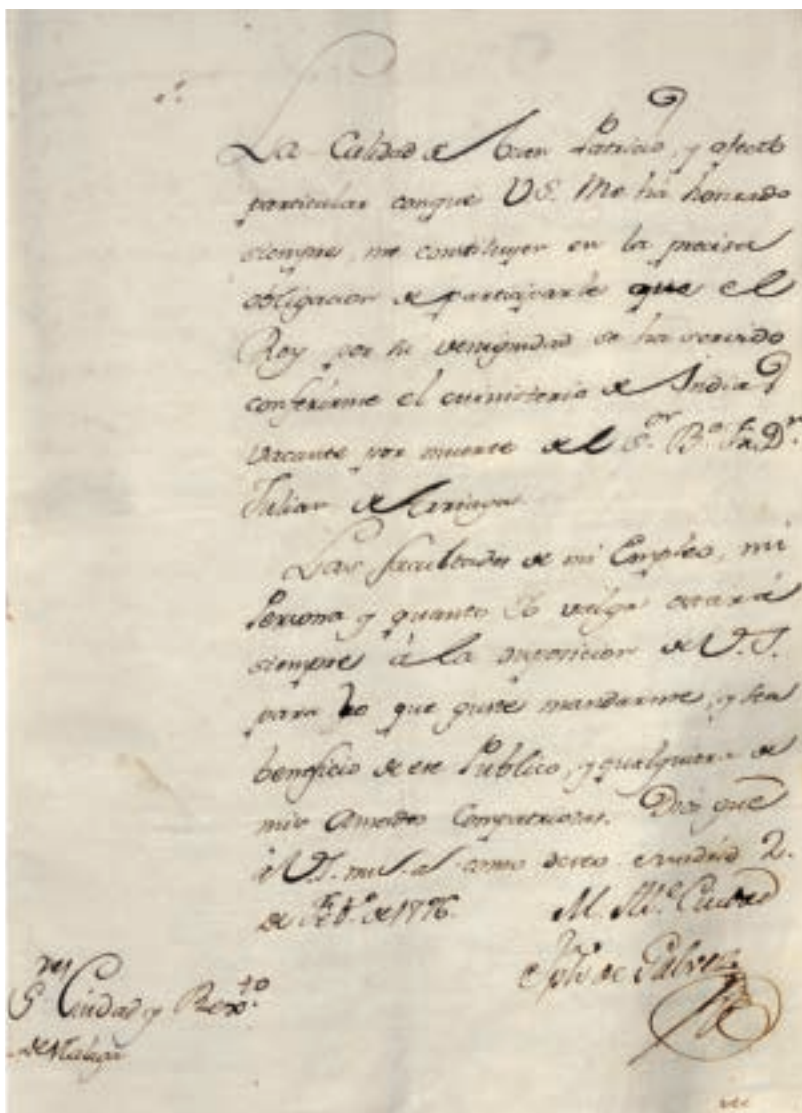 La Calidad de buen Patricio, y afecto
particular conque VS. Me ha honrado
siempre, me constituyen en la precisa
obligacion de participarle que el
Rey por su venignidad se ha servido
conferirme el ministerio de Indias
vacante por muerte del S.or B.o Fr. D.n
Julian de Arriaga.
Las facultades de mi Empleo, mi
Persona y quanto Yo valga estará
siempre á la disposicion de V.S.
para lo que guste mandarme, y sea
beneficio de ese Publico, y qualquiera de
mis Amados Compatriotas. Dios gue
á V.S. m.s a.s como deseo. Madrid 2.
de Feb.o de 1776.
M. Ill.e Ciudad
Jph de Galvez
S.res Ciudad y Rex.to
de Malaga